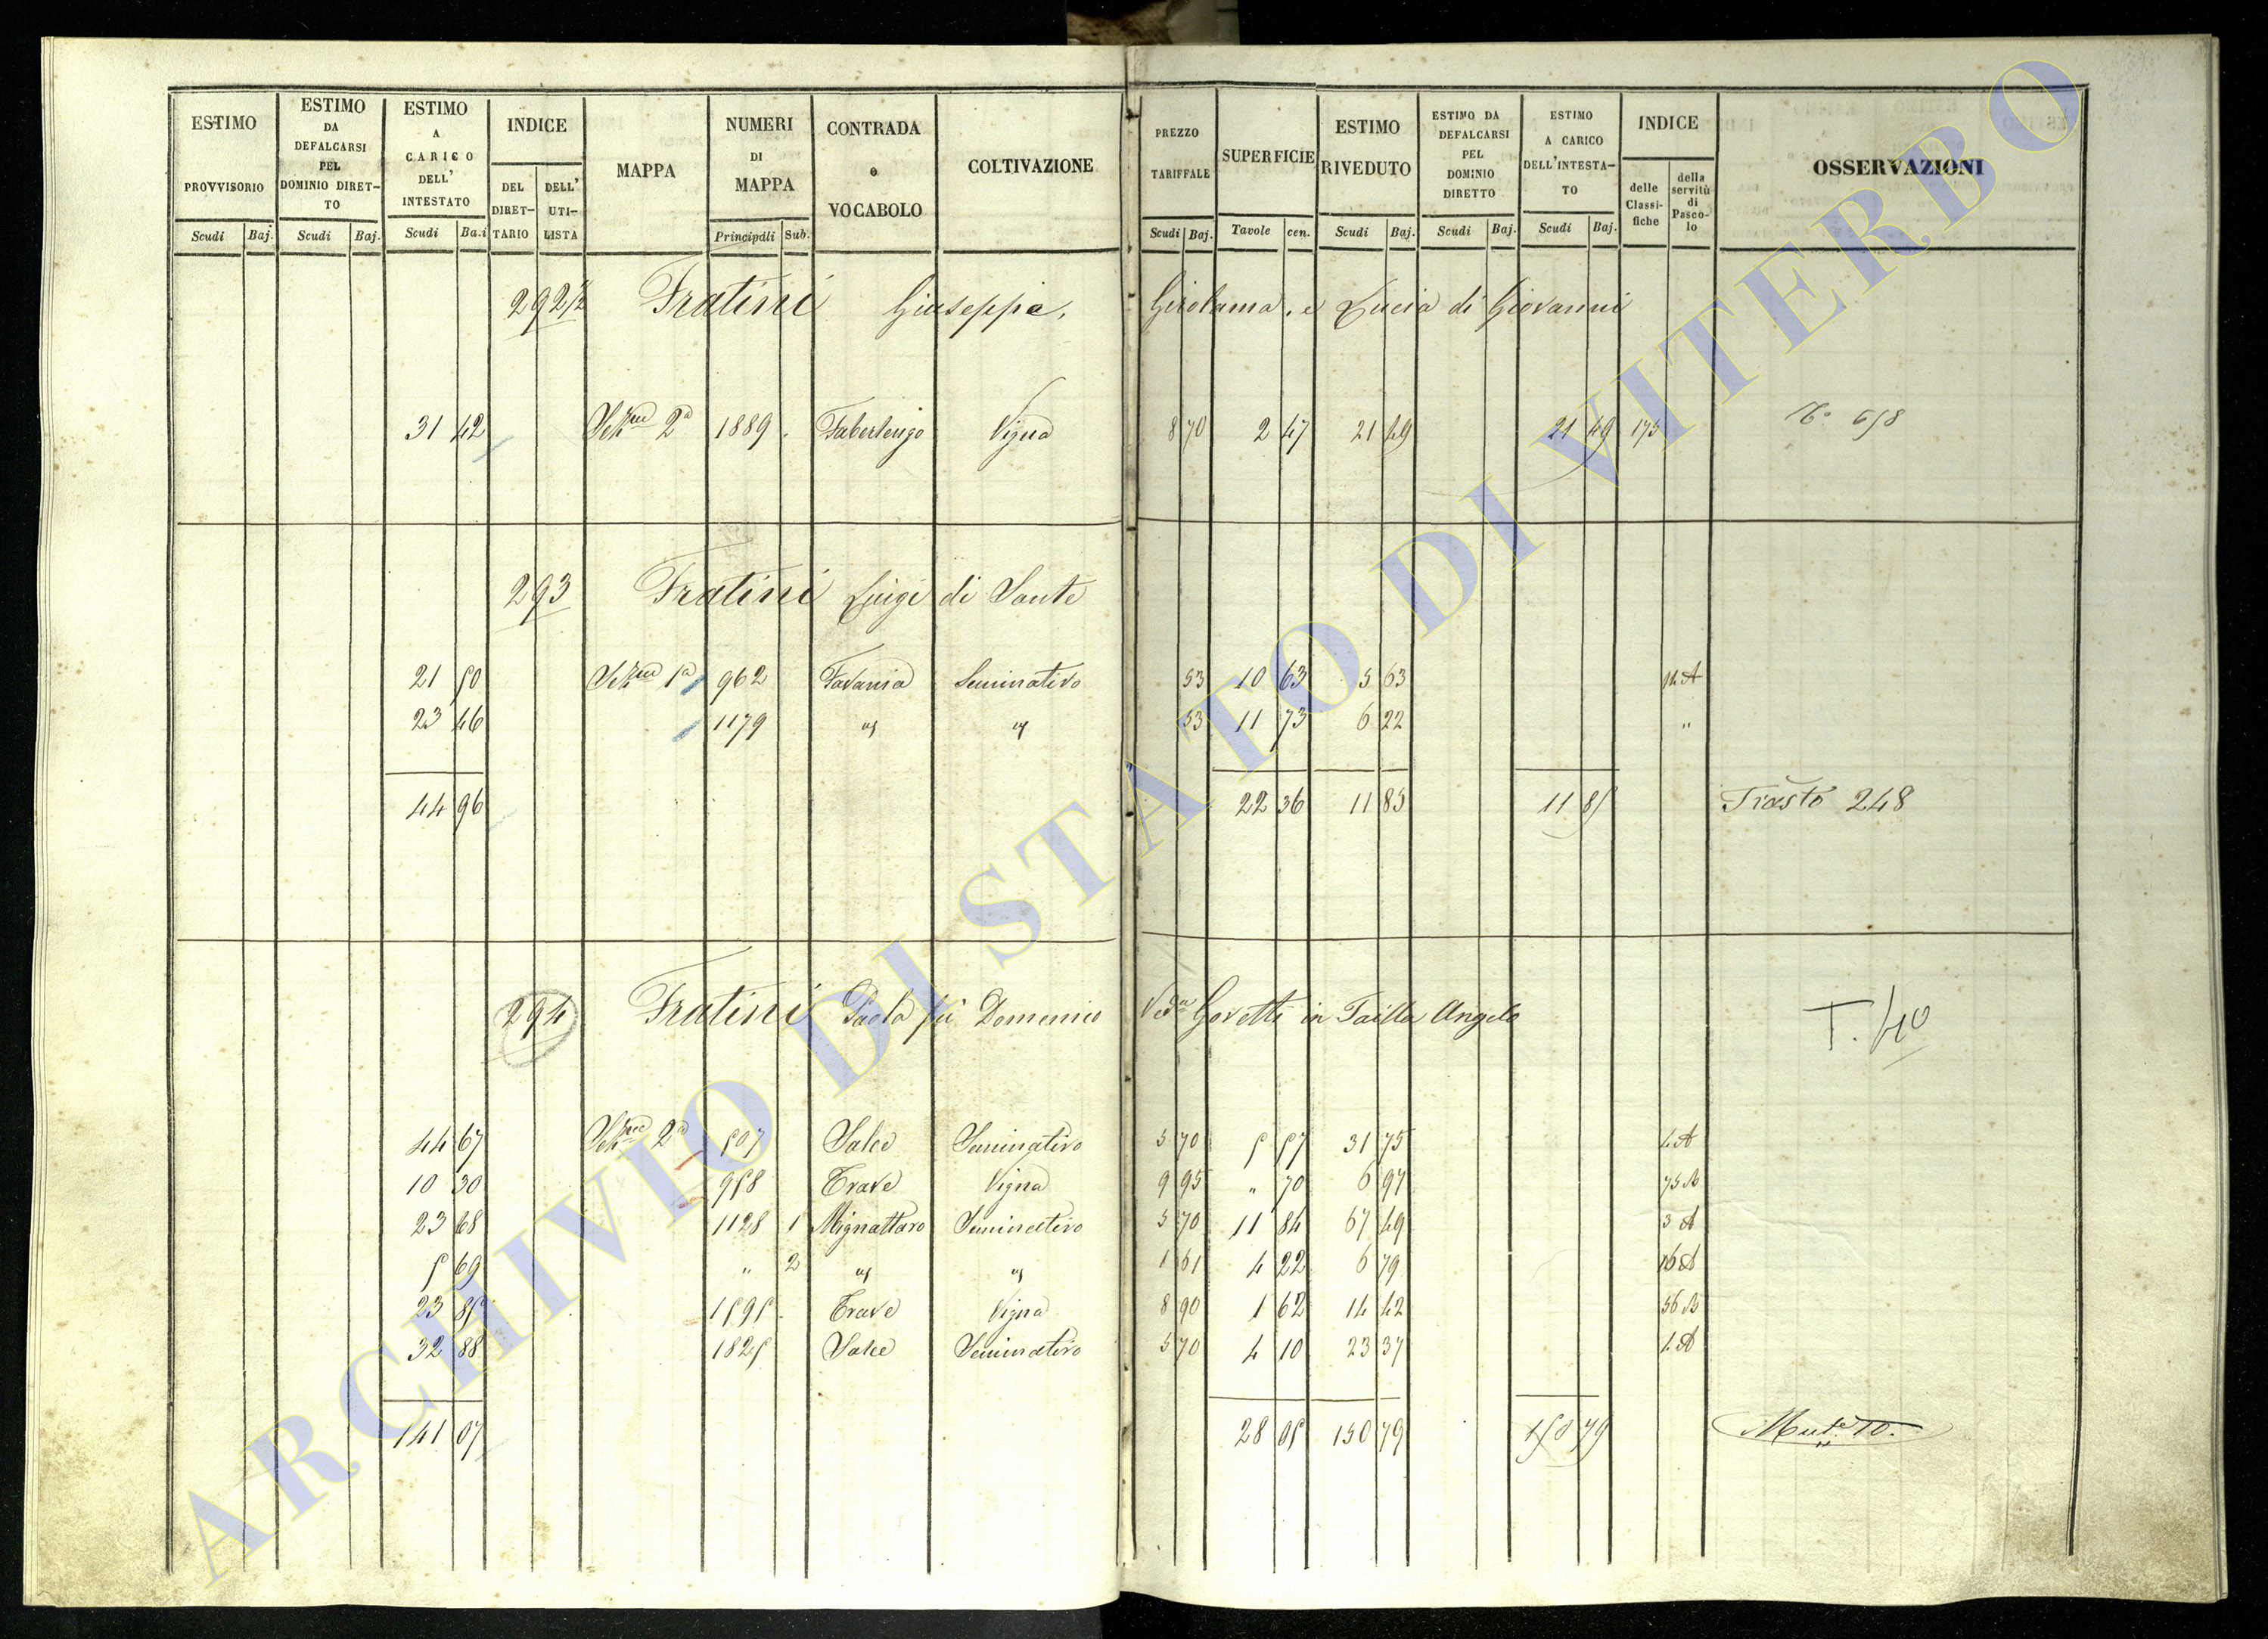 ESTIMO PROVVISORIO Scudi Baj.
ESTIMO DA DEFALCARSI PEL DOMINIO DIRET-TO Scudi Baj.
ESTIMO A CARICO DELL' INTESTATO Scudi Ba.i
INDICE DEL DIRET-TARIO DELL' UTI-LISTA
MAPPA
NUMERI DI MAPPA Principali Sub.
CONTRADA e VOCABOLO
COLTIVAZIONE
PREZZO TARIFFALE Scudi Baj.
SUPERFICIE Tavole cen.
ESTIMO RIVEDUTO Scudi Baj.
ESTIMO DA DEFALCARSI PEL DOMINIO DIRETTO Scudi Baj.
ESTIMO A CARICO DELL'INTESTA-TO Scudi Baj.
INDICE delle Classi-fiche della servitù di Pasco-lo
OSSERVAZIONI
292 1/2 Fratini Giuseppa, Girolama, e Lucia di Giovanni
31 42 2a 1889 Vigna 8 70 2 47 21 49 21 49 175
293 Fratini Luigi di Sante
21 50 1a 962 Seminativo 53 10 63 5 63 14 A
23 46 1179 " " 53 11 73 6 22 "
44 96 22 36 11 85 11 85 248
294 Fratini Paola fu Domenico Ved.a Govetti in Angelo T. 40
44 67 2a 507 Salce Seminativo 5 70 5 57 31 75 4 A
10 30 958 Trave Vigna 9 95 " 70 6 97 75 B
23 68 1128 1 Mignattaro Seminativo 5 70 11 84 67 49 3 A
5 69 " 2 " " 1 61 4 22 6 79 16 A
23 85 1595 Trave Vigna 8 90 1 62 14 42 56 B
32 88 1825 Salce Seminativo 5 70 4 10 23 37 4 A
141 07 28 05 150 79 150 79
ARCHIVIO DI STATO DI VITERBO